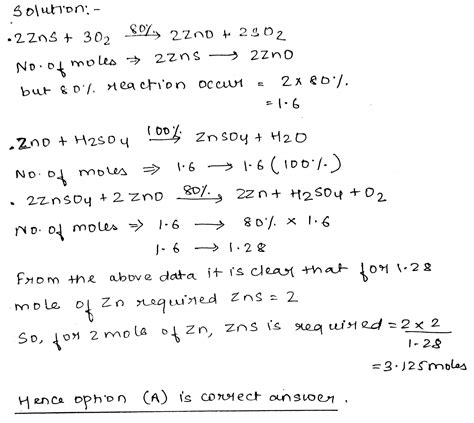 Solution:-
. 2ZnS + 3O2 80%→ 2ZnO + 2SO2
No. of moles ⇒ 2ZnS → 2ZnO
but 80% reaction occur = 2 x 80%.
= 1.6
. ZnO + H2SO4 100%→ ZnSO4 + H2O
No. of moles ⇒ 1.6 → 1.6 (100%)
. 2ZnSO4 + 2ZnO 80%→ 2Zn + H2SO4 + O2
No. of moles ⇒ 1.6 → 80% x 1.6
1.6 → 1.28
From the above data it is clear that for 1.28
mole of Zn required ZnS = 2
So, for 2 mole of Zn, ZnS is required = 2 x 2
1.28
= 3.125 moles
Hence option (A) is correct answer.